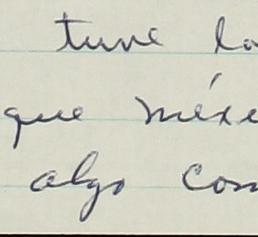 tuve la
que méxe
algo com